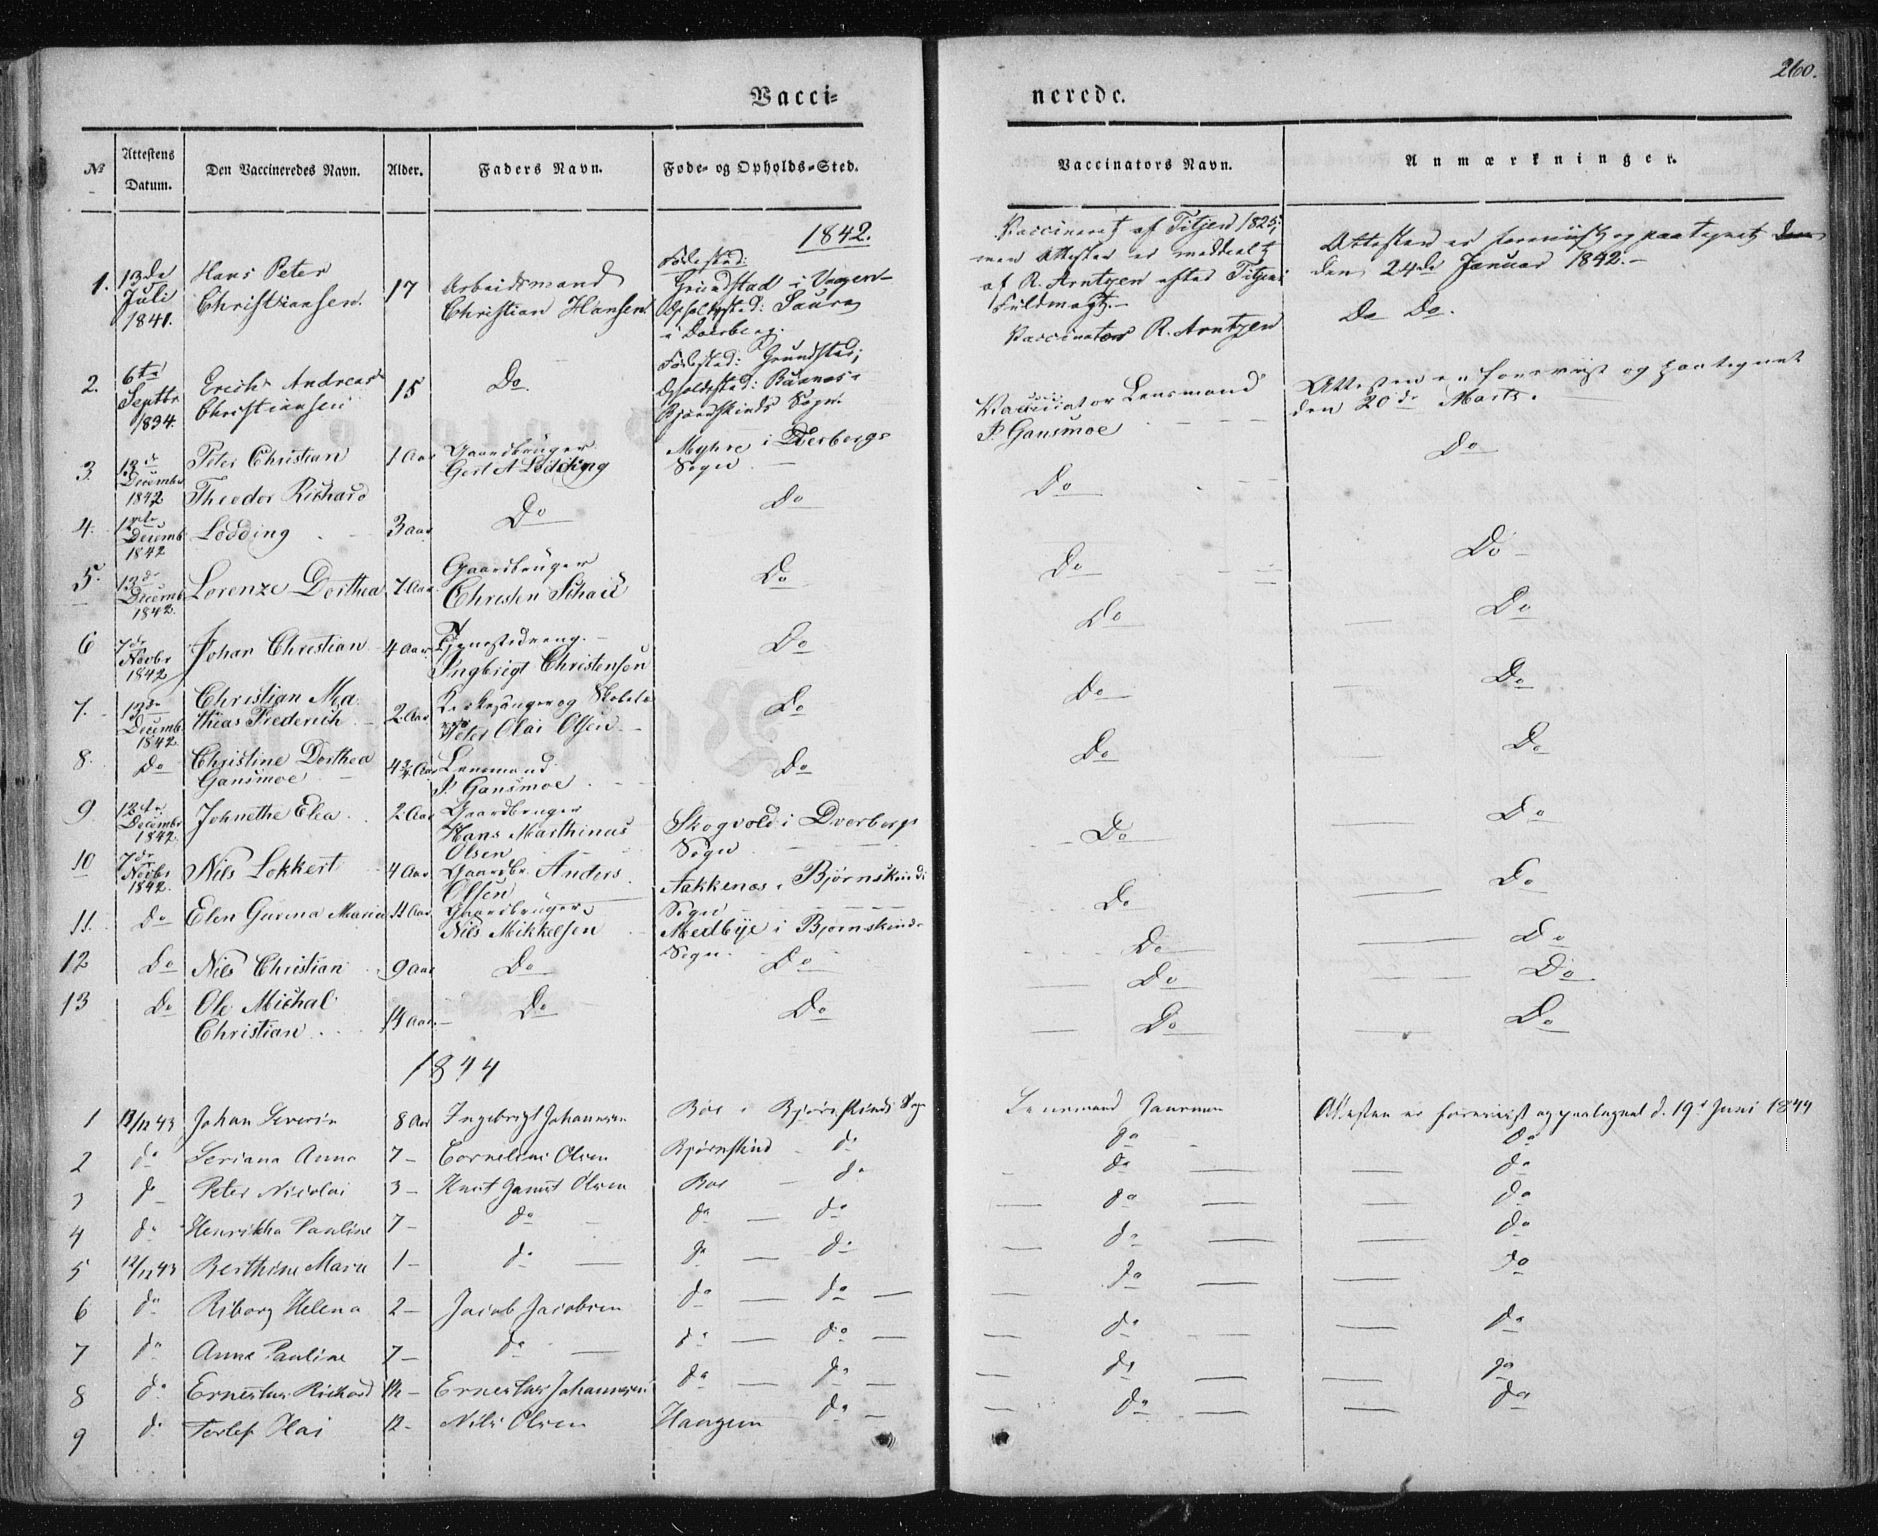 260.
Vacci=
nerede.
№ Attestens Datum. Den Vaccineredes Navn. Alder. Faders Navn. Føde- og Opholds-Sted. Vaccinators Navn. Anmærkninger.
1842.
1. 13de Juli 1841. Hans Peter Christiansen. 17 Arbeidsmand Christian Hansen Fødested: Grundstad i Opholdssted: Saura i Dverberg. Vaccineret af Titjen 1825; men Attesten er meddeelt af R. Arntzen efter Titjens Fuldmagt.- Attesten er foreviist og paategnet den 24de Januar 1842.-
2. 6te Septbr 1834. Erich Andreas Christiansen 15 Do. Fødested: Grundstad; Opholdssted: i Bjørnskinds Sogn Vaccinator R. Arntzen Do Do.
3. 13de December 1842 Peter Christian 1 Aar Gaardbruger Gert A Lødding Myhre i Dverbergs Sogn Vaccinator Lensmand P. Gansmoe Attesten er foreviist og paategnet den 20de Marts.
4. Decemb 1842 Theodor Richard Lødding 3 Aar Do Do Do Do
5. 13de Decemb 1842. Lorenze Dorthea 7 Aar Gaardbruger Christen Do Do Do
6 7de Novbr 1842 Johan Christian 4 Aar Tjenestedreng. Ingbrigt Christensen Do Do Do
7. 13de Decemb 1842. Christian Mathias Frederich 2 Aar Kirkesanger og Peter Olai Olsen Do Do Do
8. Do Christine Dorthea Gansmoe 4¾ Aar Lensmand P. Gansmoe Do Do Do
9 Decembr 1842. Johnethe Elea 2 Aar Gaardbruger Hans Marthinus Olsen Skogvold i Dverbergs Sogn Do Do
10 7de Novbr 1842. Nils Lokkert 4 Aar Gaardbr. Anders Olsen Aakkenæs i Bjørnskinds Sogn Do Do
11. Do Elen Gurina Maria 11 Aar Gaardbruger Nils Mikkelsen Medbye i Bjørnskinds Sogn Do Do
12 Do Nils Christian 9 Aar Do Do Do Do
13 Do Ole Michal Christian 14 Aar Do Do Do Do
1844
1 13/12 43 Johan Severin 8 Aar Ingebrigt Johannesen Boe i Bjørnskinds Sogn Lensmand Attesten er foreviist og paategnet d. 19de Juni 1844
2 do Seriana Anna 7 - Cornelius Olsen Bjørnskind do do do
3 do Peter Nicolai 3 - Knut Olsen Boe - do do do
4 do Henrikka Pauline 7 - do do - do do do
5 12/12 43 Berthine Marie 1 - do do - do do do
6 do Riborg Helena 2 - Jacob Jacobsen do - do do do
7 do Anne Pauline 7 - do do - do do do
8 do Ernestus Richard Ernestus Johannesen do - do do do
9 do Torlef 12 - Nils Olsen do do do